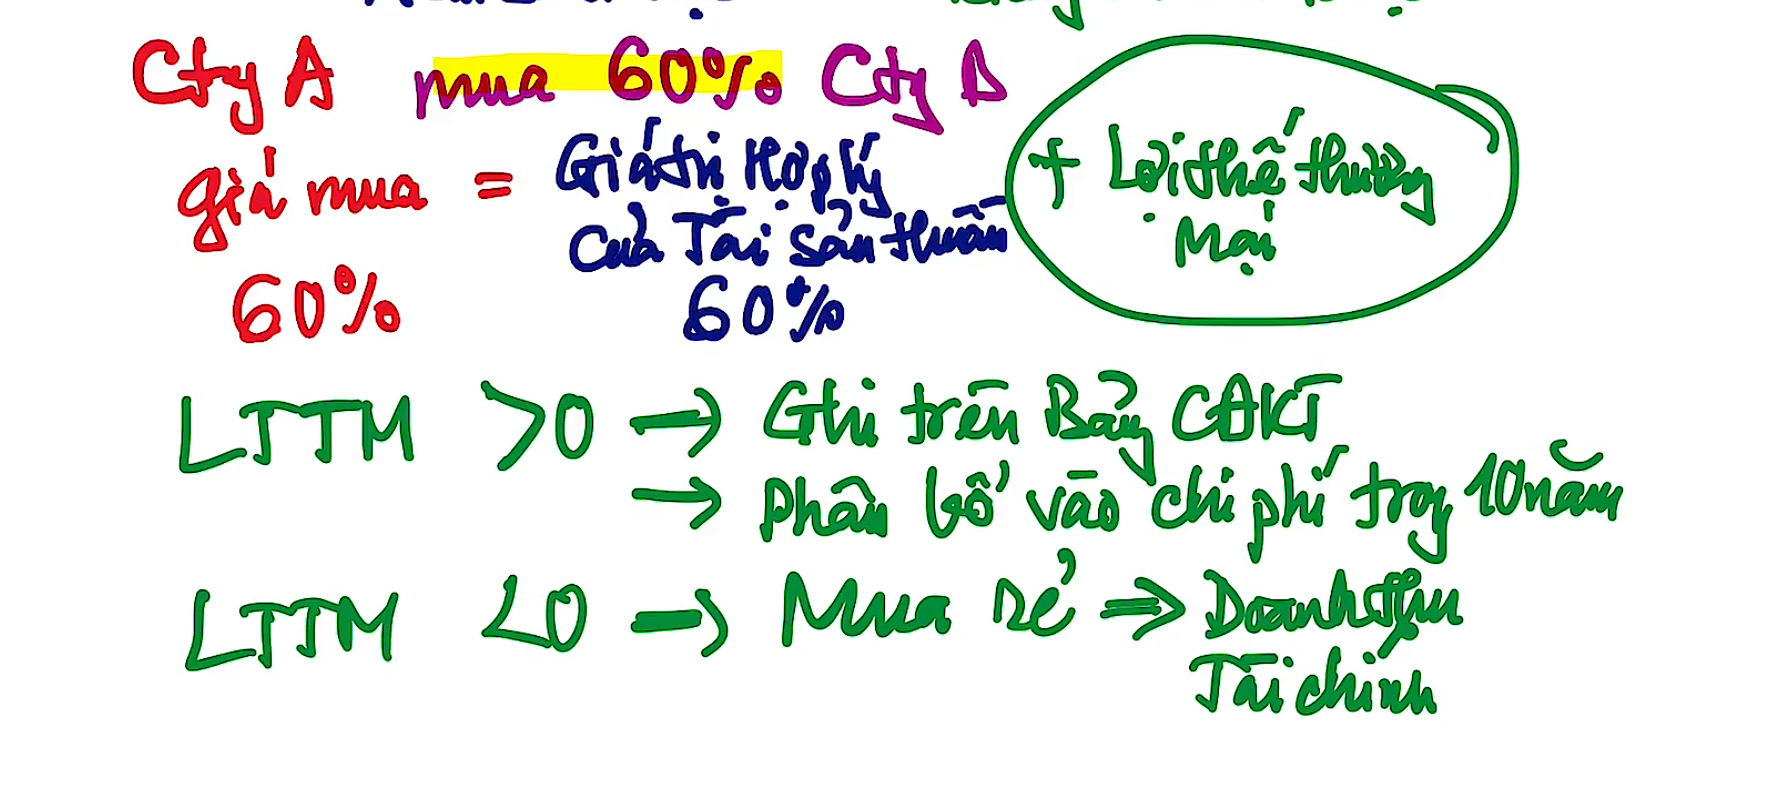 Cty A mua 60% Cty B
giá mua = Giá trị Hợp lý + Lợi thế thương
của Tài sản thuần Mại
60% 60%
LTTM >0 → Ghi trên Bảng CĐKT
→ Phân bổ vào chi phí trong 10 năm
LTTM <0 → Mua rẻ ⇒ Doanh thu
Tài chính